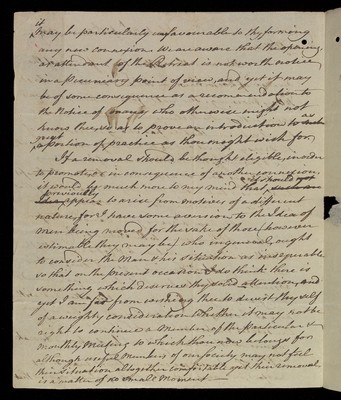 it
may be particularly unfavourable to thy forming
any new connexion. We are aware that the opening
as attendant of the Retreat is not worth notice
in a pecuniary point of view, and yet it may
be of some consequence as a recommendation to
the Notice of many who otherwise might not
know thee, so as to prove an introduction to such as
a portion of practice as thou might wish for.
If a removal should be thought eligible, in order
to promote, or in consequence of another connexion,
it would be much more to my mind that it should
previously appear to arise from motives of a different
nature, for I have some aversion to the Idea of
Men being moved for the sake of those (however
estimable they may be) who in general, ought
to consider the Man & his situation as inseparable
so that on the present occasion I do think there is
something which deserves thy solid attention, and
yet I am far from wishing thee to divest thyself
of a weighty consideration whether it may not be
right to continue a Member of the Particular &
Monthly Meeting to which thou now belongs for
although useful Members of our society may not feel
their situation altogether comfortable yet their removal
is a matter of no small Moment —